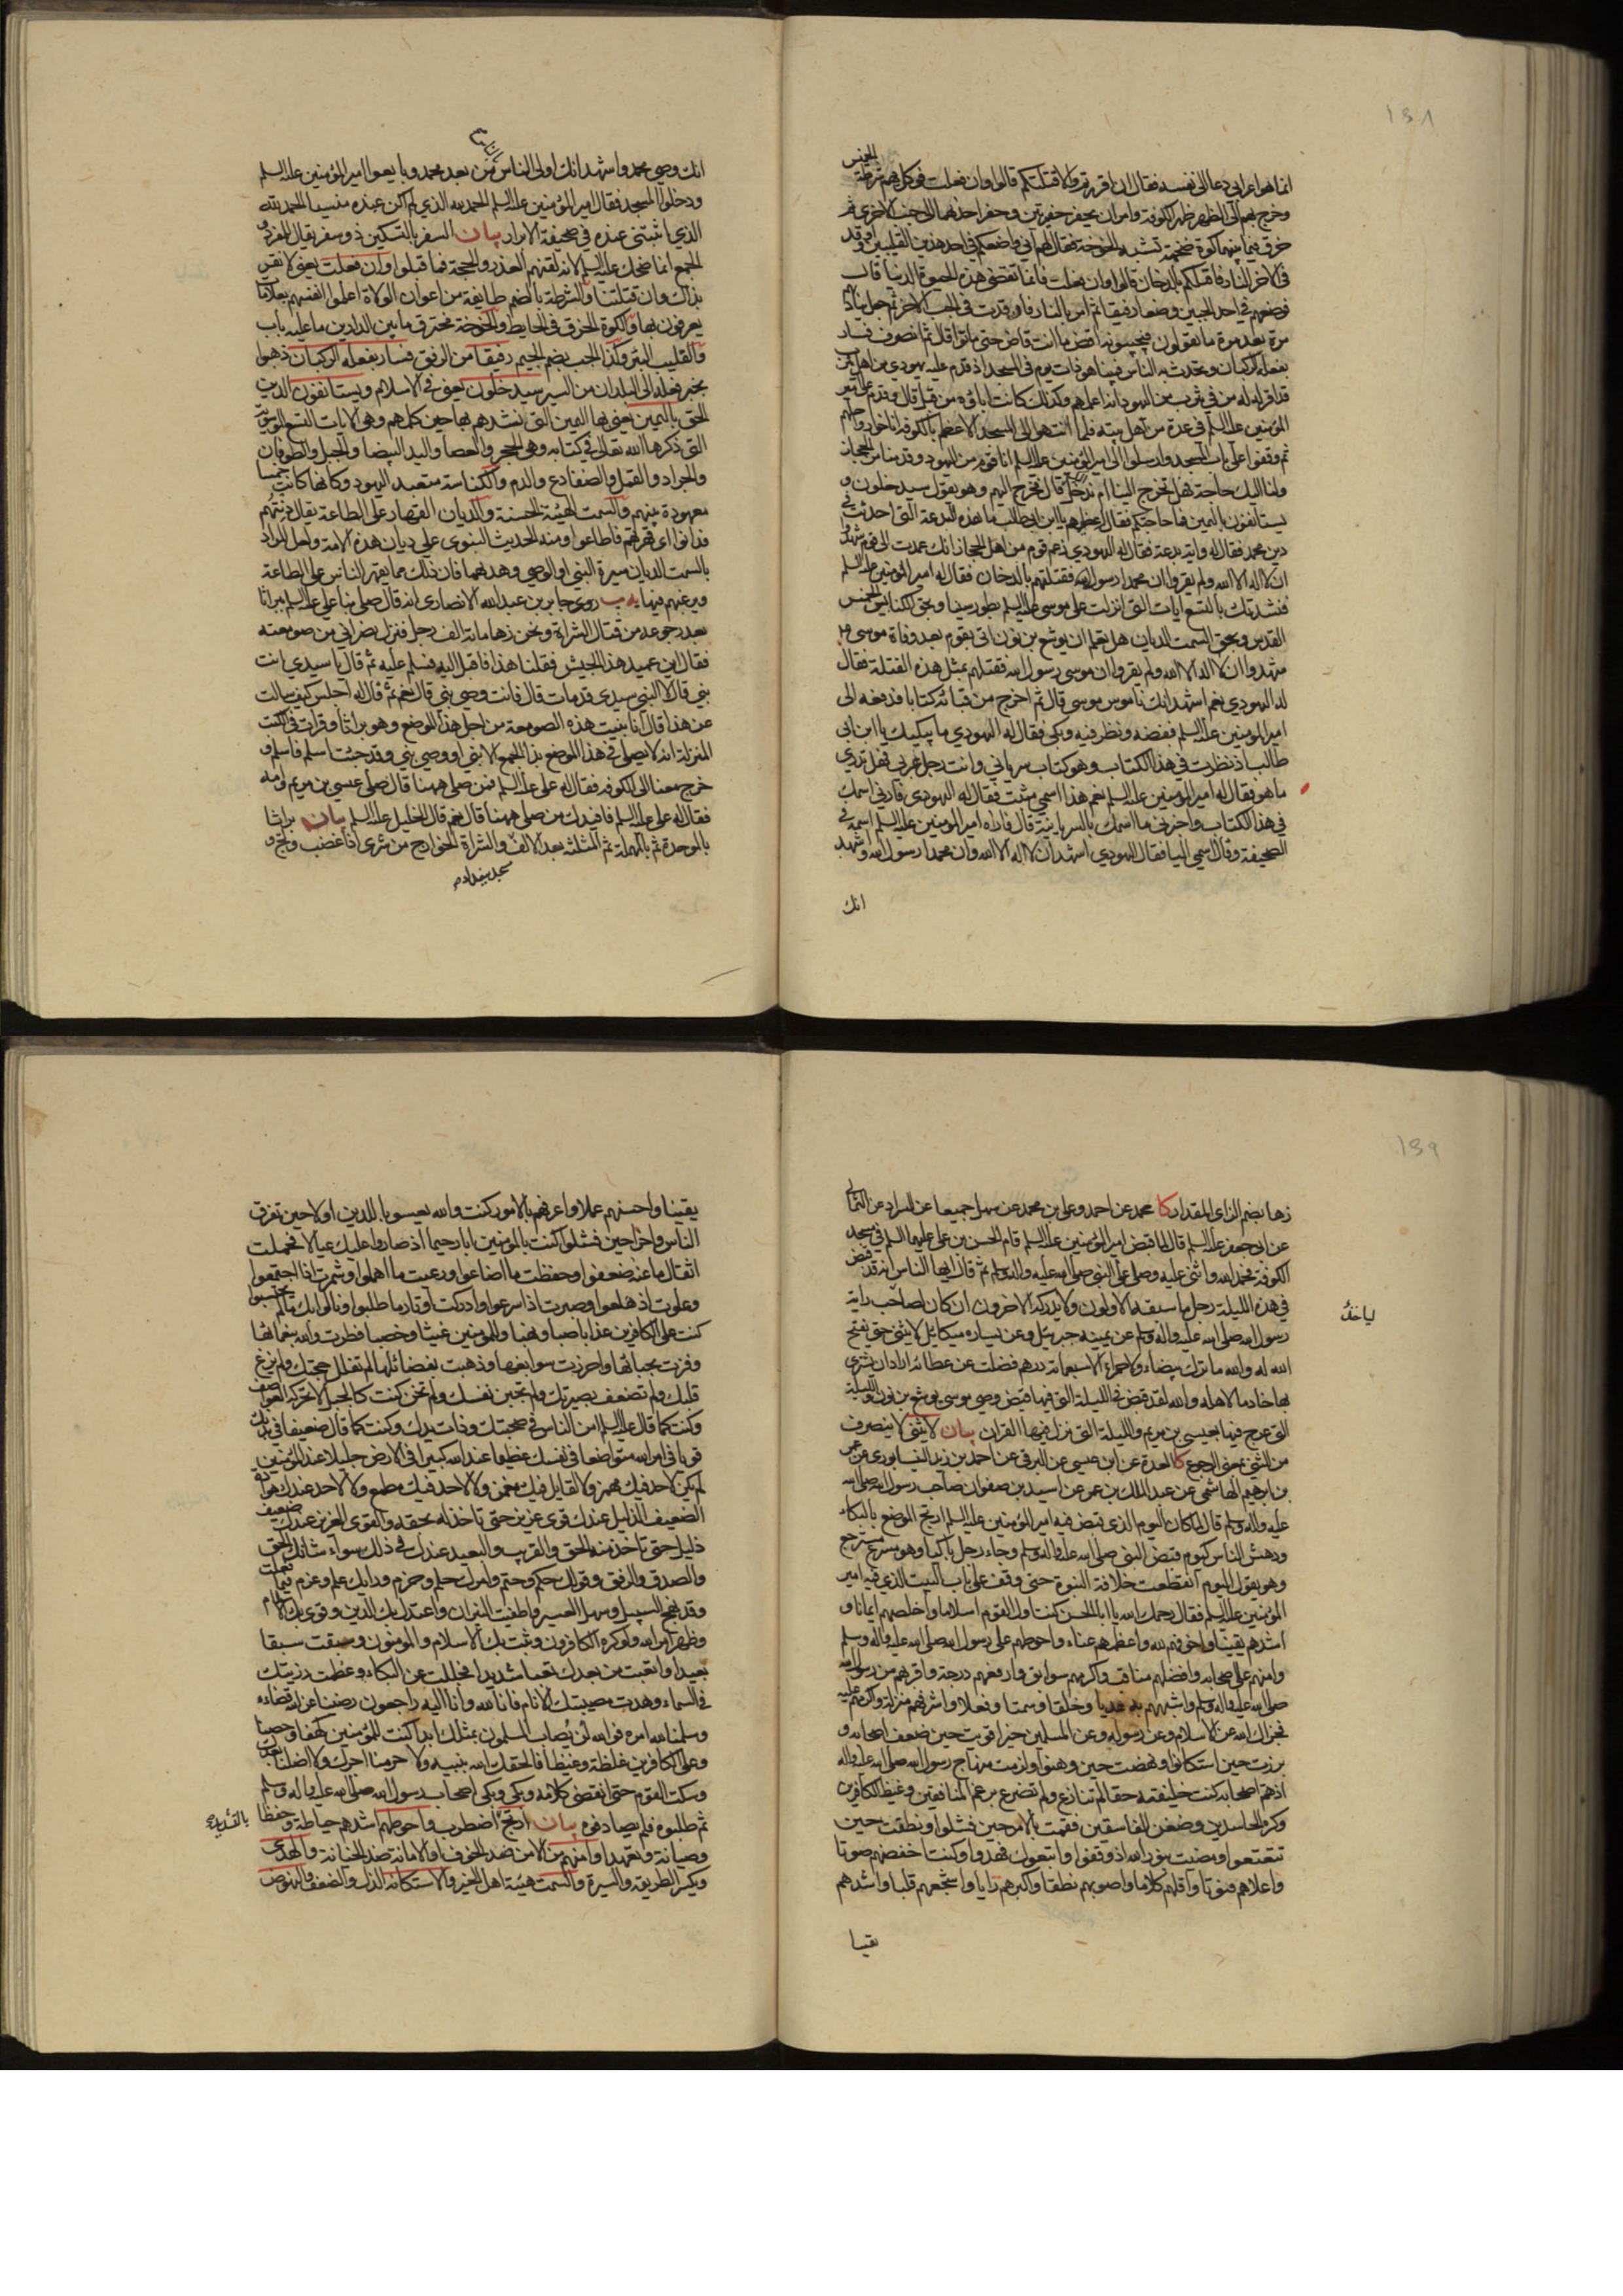 ١٣٨
انما هو اعرابي دعا الى نفسه فقال ان اقررتم والا قتلتكم قالوا وان فعلت فوكل بهم شرطة الخميس
وخرج بهم الى الظهر ظهر الكوفة وامر ان يحفر حفرتين وحفر احدهما الى جنب الاخرى ثم
خرق فيما بينهما كوة ضخمة تشبه الخوخة فقال لهم اني واضعكم في احد هذين القليبين واوقد
في الاخر النار فاقتلكم بالدخان قالوا وان فعلت فانما تقضي هذه الحيوة الدنيا قال
فوضعهم في احد الجبين وضعا رفيقا ثم امر بالنار فاوقدت في الجب الاخر ثم جعل يناديهم
مرة بعد مرة ما تقولون فيجيبونه اقض ما انت قاض حتى ماتوا قال ثم انصرف فسار
بفعله الركبان وتحدث به الناس فبينا هو ذات يوم في المسجد اذ قدم عليه يهودي من اهل يثرب
قد اقر له من في يثرب من اليهود انه اعلمهم وكذلك كانت اباؤه من قبل قال وقدم على امير
المؤمنين عليه السلم في عدة من اهل بيته فلما انتهوا الى المسجد الاعظم بالكوفة اناخوا رواحلهم
ثم وقفوا على باب المسجد وارسلوا الى امير المؤمنين عليه السلم انا قوم من اليهود قدمنا من الحجاز
ولنا اليك حاجة فهل تخرج الينا ام ندخل قال فخرج اليهم وهو يقول سيدخلون و
يستانفون باليمين فما حاجتكم فقال اعظمهم يا ابن ابي طالب ما هذه البدعة التي احدثت في
دين محمد فقال له واية بدعة فقال له اليهودي زعم قوم من اهل الحجاز انك عمدت الى قوم شهدوا
ان لا اله الا الله ولم يقروا ان محمدا رسول الله فقتلتهم بالدخان فقال له امير المؤمنين عليه السلم
فنشدتك بالتسع ايات التي انزلت على موسى عليه السلم بطور سينا وبحق الكنايس الخمس
القدس وبحق السمت الديان هل تعلم ان يوشع بن نون اتي بقوم بعد وفاة موسى
شهدوا ان لا اله الا الله ولم يقروا ان موسى رسول الله فقتلهم بمثل هذه القتلة فقال
له اليهودي نعم اشهد انك ناموس موسى قال ثم اخرج من قبائه كتابا فدفعه الى
امير المؤمنين عليه السلم ففضه ونظر فيه وبكى فقال له اليهودي ما يبكيك يا ابن ابي
طالب اذ نظرت في هذا الكتاب وهو كتاب سرياني وانت رجل عربي فهل تدري
ما هو فقال له امير المؤمنين عليه السلم نعم هذا اسمي مثبت فقال له اليهودي فارني اسمك
في هذا الكتاب واخبرني ما اسمك بالسريانية قال فاراه امير المؤمنين عليه السلم اسمه في
الصحيفة وقال اسمي اليا فقال اليهودي اشهد ان لا اله الا الله وان محمدا رسول الله واشهد
انك
انك وصي محمد واشهد انك اولى الناس بالناس من بعد محمد وبايعوا امير المؤمنين عليه السلم
ودخلوا المسجد فقال امير المؤمنين عليه السلم الحمد لله الذي لم اكن عنده منسيا الحمد لله
الذي اثبتني عنده في صحيفة الابرار بيان السفر بالتسكين ذو سفر يقال للمفرد و
الجمع انما ضحك عليه السلم لانه لقنهم العذر والحجة فما قبلوا وان فعلت يعني لا نقر
بذلك وان قتلتنا والشرطة بالضم طايفة من اعوان الولاة اعلموا انفسهم بعلامات
يعرفون بها والكوة الخرق في الحايط والخوخة مخترق ما بين الدارين ما عليه باب
والقليب البئر وكذا الجب بضم الجيم رفيقا من الرفق فسار بفعله الركبان ذهبوا
بخبر فعله الى البلدان من السير سيدخلون يعني في الاسلام ويستانفون الدين
الحق باليمين يعني بها اليمين التي نشدهم بها حين كلمهم وهي الايات التسع
التي ذكرها الله تعالى في كتابه وهي الحجر والعصا واليد البيضا والجبل والطوفان
والجراد والقمل والضفادع والدم والكناسة متعبد اليهود وكانها كانت خمسا
معهودة بينهم والسمت الهيئة الحسنة والديان القهار على الطاعة يقال دنتهم
فدانوا اي قهرتهم فاطاعوا ومنه الحديث النبوي علي ديان هذه الامة ولعل المراد
بالسمت الديان سيرة النبي او الوصي وهديهما فان ذلك مما يقهر الناس على الطاعة
ويرغبهم فيها يب روى جابر بن عبد الله الانصاري انه قال صلى بنا علي عليه السلم ببراثا
بعد رجوعه من قتال الشراة ونحن زها مائة الف رجل فنزل نصراني من صومعته
فقال اين عميد هذا الجيش فقلنا هذا فاقبل اليه فسلم عليه ثم قال يا سيدي انت
نبي قال لا النبي سيدي قد مات قال فانت وصي نبي قال نعم ثم قال له اجلس كيف سالت
عن هذا قال انا بنيت هذه الصومعة من اجل هذا الموضع وهو براثا وقرات في الكتب
المنزلة انه لا يصلي في هذا الموضع بذا الجمع الا نبي او وصي نبي وقد جئت اسلم فاسلم و
خرج معنا الى الكوفة فقال له علي عليه السلم فمن صلى ههنا قال صلى عيسى بن مريم وامه
فقال له علي عليه السلم فافيدك من صلى ههنا قال نعم قال الخليل عليه السلم بيان براثا
بالموحدة ثم بالمهملة ثم المثلثة بعد الالف والشراة الخوارج من شرى اذا غضب ولج و
مسجد ببغداد
١٣٩
زها بضم الزاي المقدار كا محمد عن احمد وعلي بن محمد عن سهل جميعا عن السراد عن الثمالي
عن ابي جعفر عليه السلم قال لما قبض امير المؤمنين عليه السلم قام الحسن بن علي عليهما السلم في مسجد
الكوفة فحمد الله واثنى عليه وصلى على النبي صلى الله عليه واله وسلم ثم قال ايها الناس انه قد قبض
في هذه الليلة رجل ما سبقه الاولون ولا يدركه الاخرون ان كان لصاحب راية
رسول الله صلى الله عليه واله وسلم عن يمينه جبرئيل وعن يساره ميكائيل لا ينثني حتى يفتح
الله له والله ما ترك بيضاء ولا حمراء الا سبعمائة درهم فضلت عن عطائه اراد ان يشتري
بها خادما لاهله والله لقد قبض في الليلة التي فيها قبض وصي موسى يوشع بن نون والليلة
التي عرج فيها بعيسى بن مريم والليلة التي نزل فيها القران بيان لا ينثني لا ينصرف
من الثني بمعنى الرجوع كا العدة عن ابن عيسى عن البرقي عن احمد بن زيد النيسابوري عن عمر
بن ابرهيم الهاشمي عن عبد الملك بن عمر عن اسيد بن صفوان صاحب رسول الله صلى الله
عليه واله وسلم قال لما كان اليوم الذي قبض فيه امير المؤمنين عليه السلم ارتج الموضع بالبكاء
ودهش الناس كيوم قبض النبي صلى الله عليه واله وسلم وجاء رجل باكيا وهو مسرع مسترجع
وهو يقول اليوم انقطعت خلافة النبوة حتى وقف على باب البيت الذي فيه امير
المؤمنين عليه السلم فقال رحمك الله يا ابا الحسن كنت اول القوم اسلاما واخلصهم ايمانا و
اشدهم يقينا واخوفهم لله واعظمهم عناء واحوطهم على رسول الله صلى الله عليه واله وسلم
وامنهم على اصحابه وافضلهم مناقب واكرمهم سوابق وارفعهم درجة واقربهم من رسول الله
صلى الله عليه واله وسلم واشبههم به هديا وخلقا وسمتا وفعلا واشرفهم منزلة واكرمهم عليه
فجزاك الله عن الاسلام وعن رسوله وعن المسلمين خيرا قويت حين ضعف اصحابه و
برزت حين استكانوا ونهضت حين وهنوا ولزمت منهاج رسول الله صلى الله عليه واله
اذ هم اصحابه كنت خليفته حقا لم تنازع ولم تضرع برغم المنافقين وغيظ الكافرين
وكره الحاسدين وضغن الفاسقين فقمت بالامر حين فشلوا ونطقت حين
تتعتعوا ومضيت بنور الله اذ وقفوا واتبعوك فهدوا وكنت اخفضهم صوتا
واعلاهم قنوتا واقلهم كلاما واصوبهم نطقا واكبرهم رايا واشجعهم قلبا واشدهم
يقينا
يقينا واحسنهم عملا واعرفهم بالامور كنت والله يعسوبا للدين اولا حين تفرق
الناس واخرا حين فشلوا كنت بالمؤمنين ابا رحيما اذ صاروا عليك عيالا فحملت
اثقال ما عنه ضعفوا وحفظت ما اضاعوا ورعيت ما اهملوا وشمرت اذا اجتمعوا
وعلوت اذ هلعوا وصبرت اذ اسرعوا وادركت اوتار ما طلبوا ونالوا بك ما لم يحتسبوا
كنت على الكافرين عذابا صبا ونهبا وللمؤمنين غيثا وخصبا فطرت والله بنعمائها
وفزت بحبائها واحرزت سوابقها وذهبت بفضائلها لم تفلل حجتك ولم يزغ
قلبك ولم تضعف بصيرتك ولم تجبن نفسك ولم تخن كنت كالجبل لا تحركه العواصف
وكنت كما قال عليه السلم امن الناس في صحبتك وذات يدك وكنت كما قال ضعيفا في بدنك
قويا في امر الله متواضعا في نفسك عظيما عند الله كبيرا في الارض جليلا عند المؤمنين
لم يكن لاحد فيك مهمز ولا لقايل فيك مغمز ولا لاحد فيك مطمع ولا لاحد عندك هوادة
الضعيف الذليل عندك قوي عزيز حتى تاخذ له بحقه والقوي العزيز عندك ضعيف
ذليل حتى تاخذ منه الحق والقريب والبعيد عندك في ذلك سواء شانك الحق
والصدق والرفق وقولك حكم وحتم وامرك حلم وحزم ورايك علم وعزم فيما فعلت
وقد نهج السبيل وسهل العسير واطفيت النيران واعتدل بك الدين وقوي بك الاسلام
وظهر امر الله ولو كره الكافرون وثبت بك الاسلام والمؤمنون وسبقت سبقا
بعيدا واتعبت من بعدك تعبا شديدا فجللت عن البكاء وعظمت رزيتك
في السماء وهدت مصيبتك الانام فانا لله وانا اليه راجعون رضينا عن الله قضاءه
وسلمنا لله امره فوالله لن يصاب المسلمون بمثلك ابدا كنت للمؤمنين كهفا وحصنا
وعلى الكافرين غلظة وغيظا فالحقك الله بنبيه ولا حرمنا اجرك ولا اضلنا بعدك
وسكت القوم حتى انقضى كلامه وبكى وبكى اصحاب رسول الله صلى الله عليه واله وسلم
ثم طلبوه فلم يصادفوه بيان ارتج اضطرب واحوطهم اشدهم حياطة وحفظا
وصيانة وتعهدا وامنهم من الامن ضد الخوف او الامانة ضد الخيانة والهدى
ويكسر الطريقة والسيرة والسمت هيئة اهل الخير والاستكانة الذل والضعف والنهوض